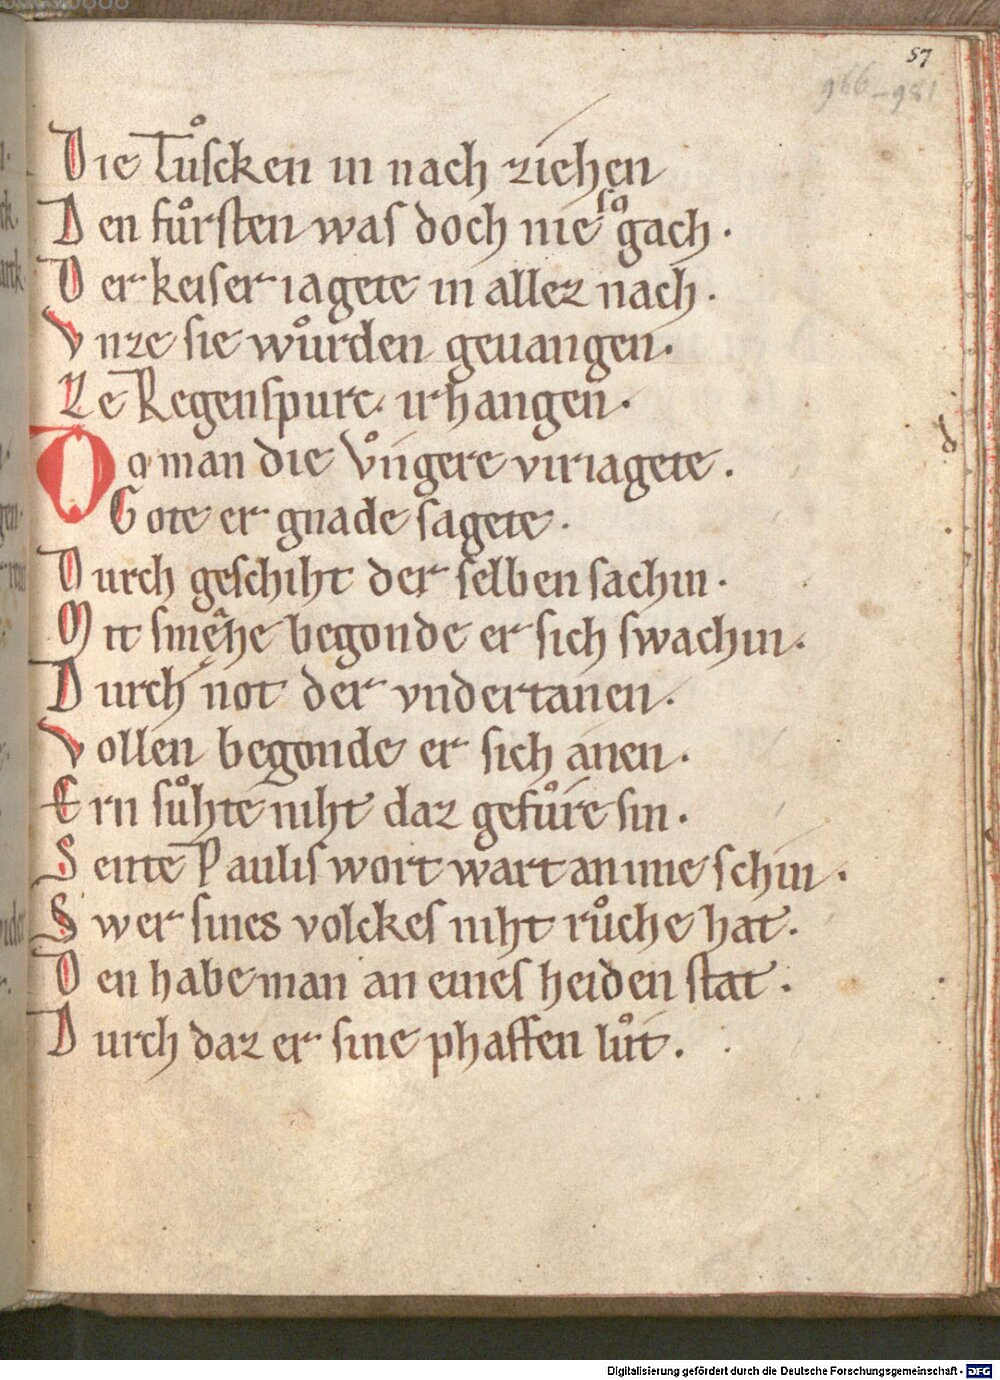 57
966-981
Die Tuͦſcken in nach ziehen
Den fuͦrſten waſ doch nie ſo gach.
Der keiſer iagete in allez nach.
Vnze ſie wuͦrden geuangen.
Ze Regenſpurc irhangen.
Do man die Vͦngere viriagete.
Gote er gnade ſagete.
Durch geſchiht der ſelben ſachin.
Mit ſmęhe begonde er ſich ſwachin.
Durch not der vndertanen.
Vollen begonde er ſich anen.
Ern ſuͦhte niht daz gefuͦre ſin.
Seinte Pauliſ wort wart an ime ſchin.
Swer ſines volckeſ niht ruͦche hat.
Den habe man an eineſ heiden ſtat.
Durch daz er ſine phaffen luͦt.
Digitalisierung gefördert durch die Deutsche Forschungsgemeinschaft - DFG